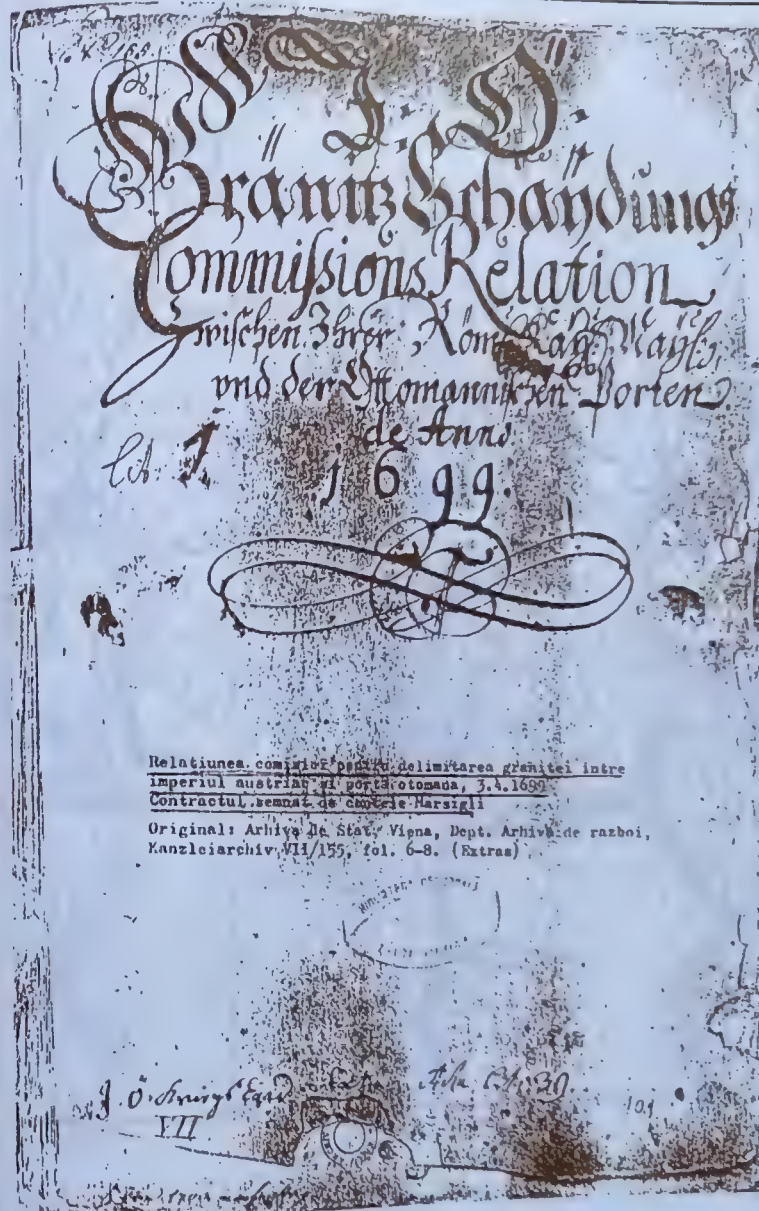 J. Ö.
Gränitz Schaÿdungs
Commissions Relation
Zwischen Ihrer Röm: Kaÿ: Maÿtt:
vnd der Ottomannischen Porten
de Anno
Lit. 1
1699.
Relatiunea comisiei pentru delimitarea granitei intre
imperiul austriac si porta otomana, 3.4.1699
Contractul semnat de contele Marsigli
Original: Arhiva de Stat, Viena, Dept. Arhiva de razboi,
Kanzleiarchiv VII/155, fol. 6-8. (Extras)
VII
101